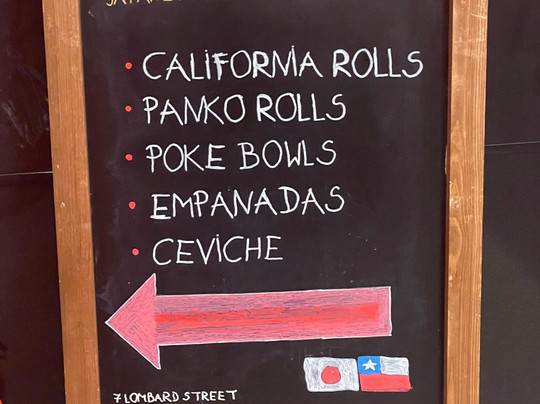 • CALIFORNIA ROLLS
• PANKO ROLLS
• POKE BOWLS
• EMPANADAS
• CEVICHE
7 LOMBARD STREET